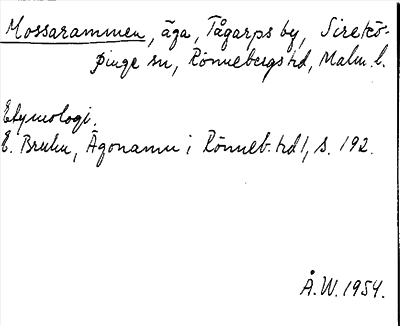 Mossarammen, äga, Tågarps by, Sireköpinge
sn, Rönnebergs hd, Malm. l.
Etymologi.
E. Bruhn, Ägonamn i Rönneb. hd 1, s. 192.
Å.W. 1954.